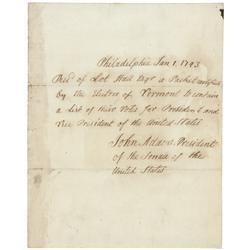 Philadelphia Jan 1. 1793
Recd of Lot Hall Esqr a Packet certified
by the Electors of Vermont to contain
a List of their Votes for President and
Vice President of the United States
John Adams, President
of the Senate of the
United States